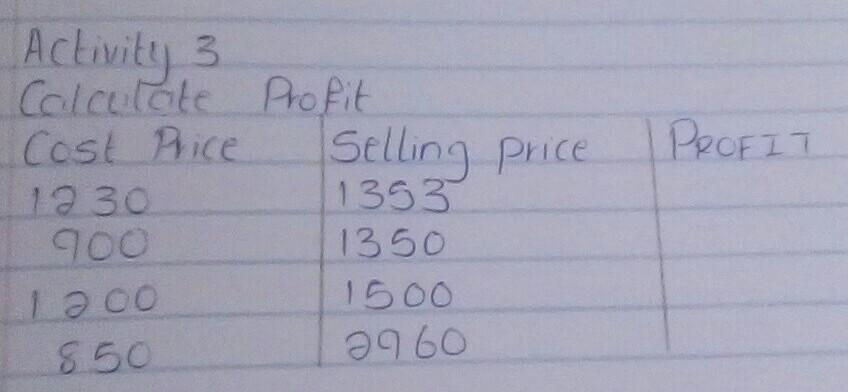 Activity 3
Calculate Profit
Cost Price Selling price PROFIT
1230 1353
900 1350
1200 1500
850 2960